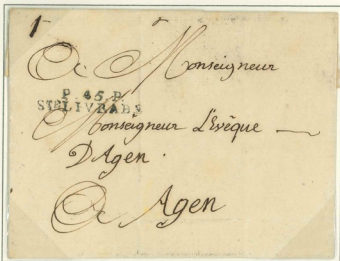 A Monseigneur
P.45.P
STE LIVRADE
Monseigneur L'Evêque
D'Agen.
A Agen